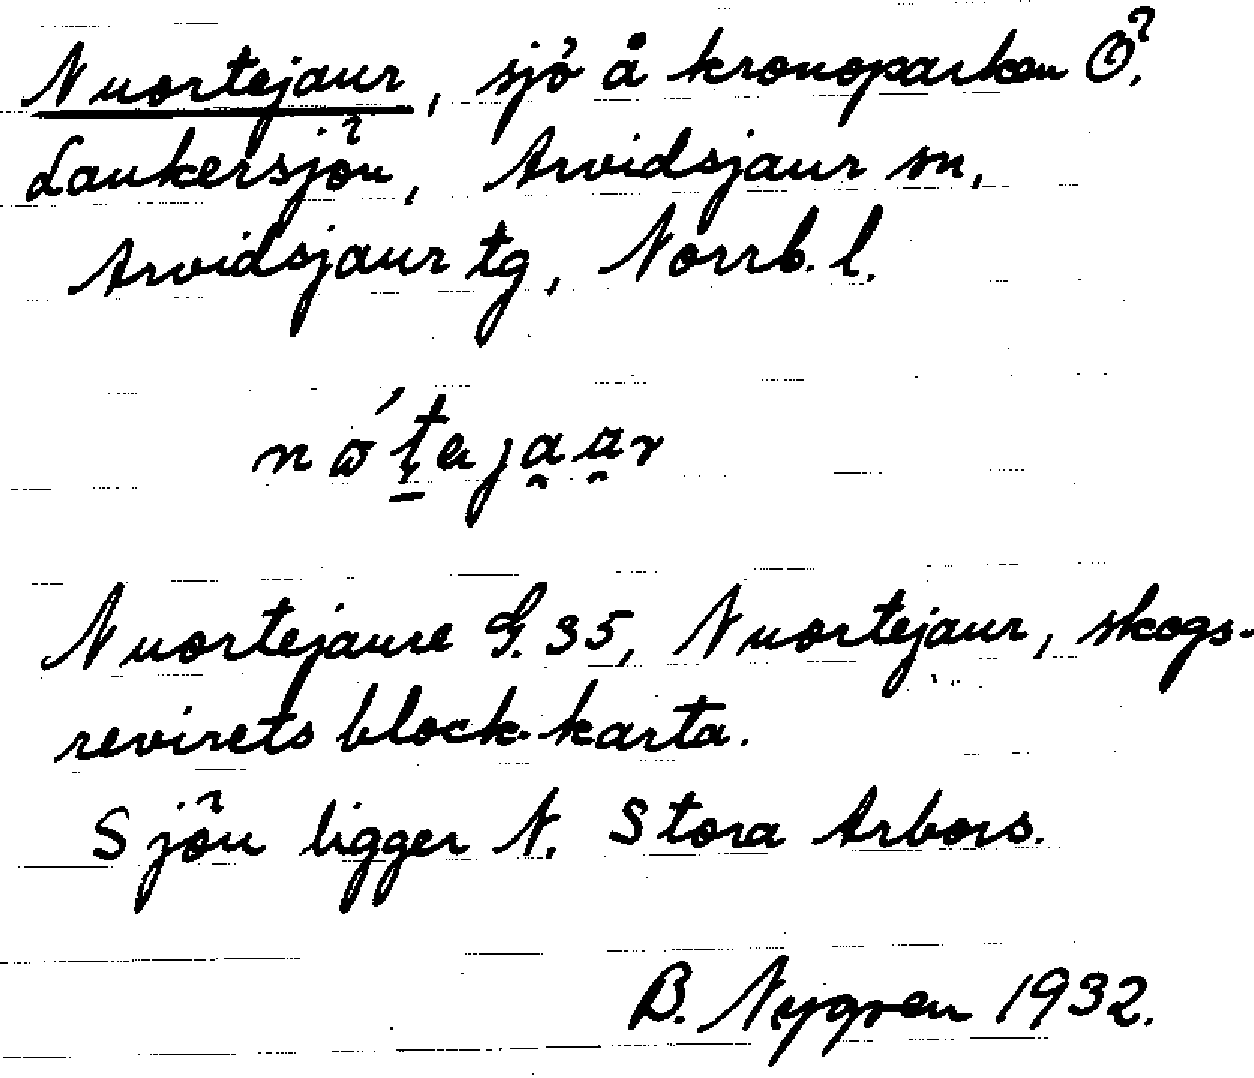 Nuortejaur, sjö å kronoparken Ö.
Laukersjön, Arvidsjaur sn,
Arvidsjaur tg, Norrb. l.
Nuortejaure G. 35, Nuortejaur, skogs-
revirets block-karta.
Sjön ligger N. Stora Arbors.
B. Nygren 1932.